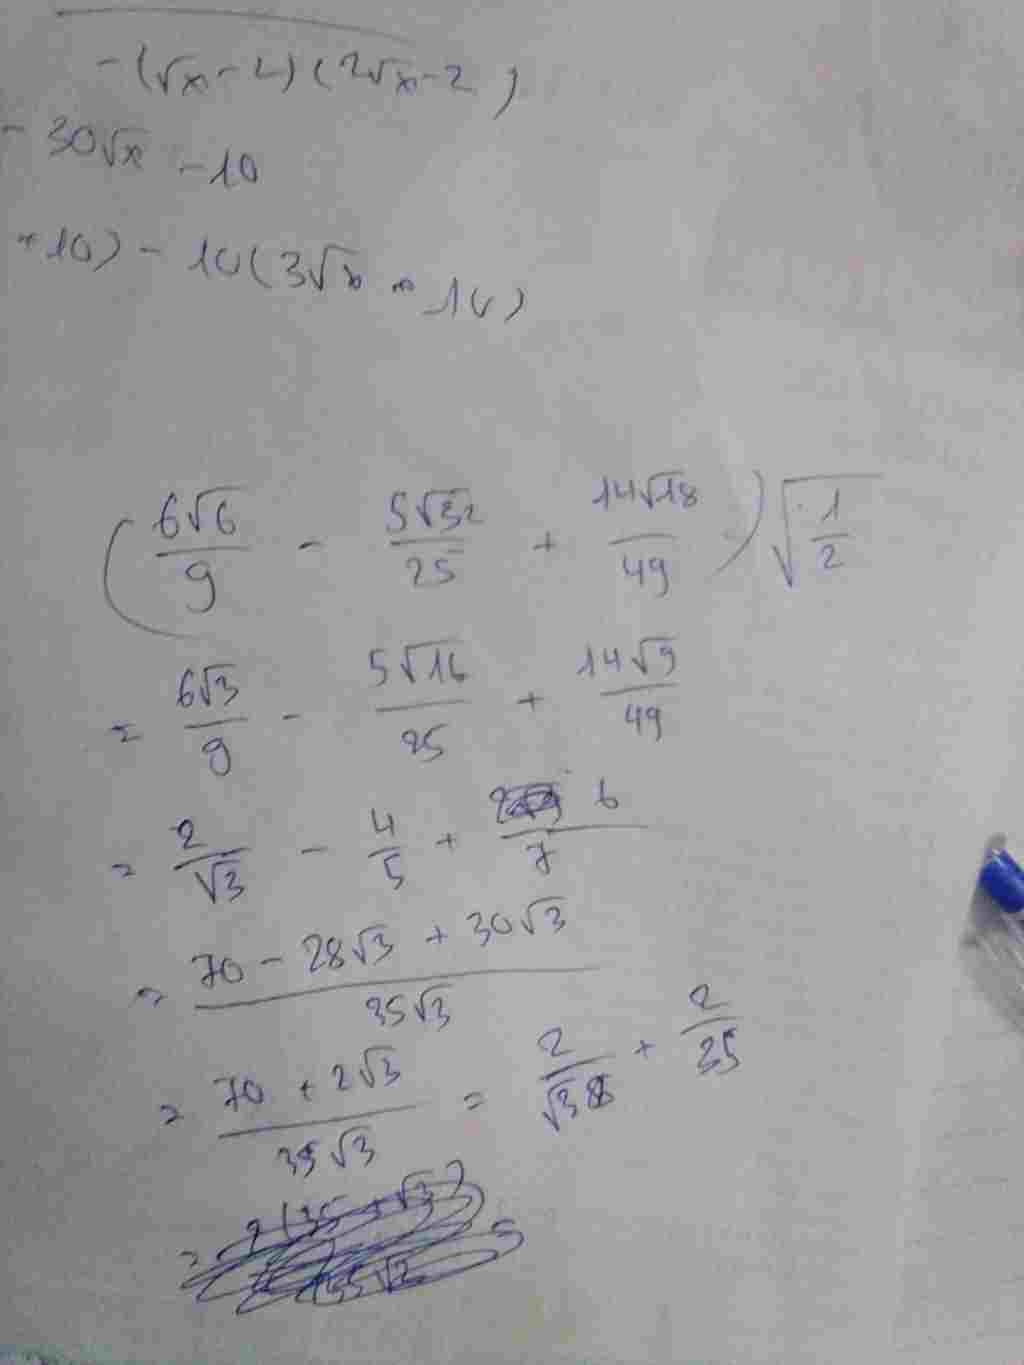 -(√x - 2)(2√x - 2)
- 30√x - 10
+10) - 10(3√x - 10)
(6√6/9 - 5√32/25 + 14√18/49)√(1/2)
= 6√3/9 - 5√16/25 + 14√9/49
= 2/√3 - 4/5 + 6/7
= (70 - 28√3 + 30√3)/(35√3)
= (70 + 2√3)/(35√3) = 2/√3 + 2/35